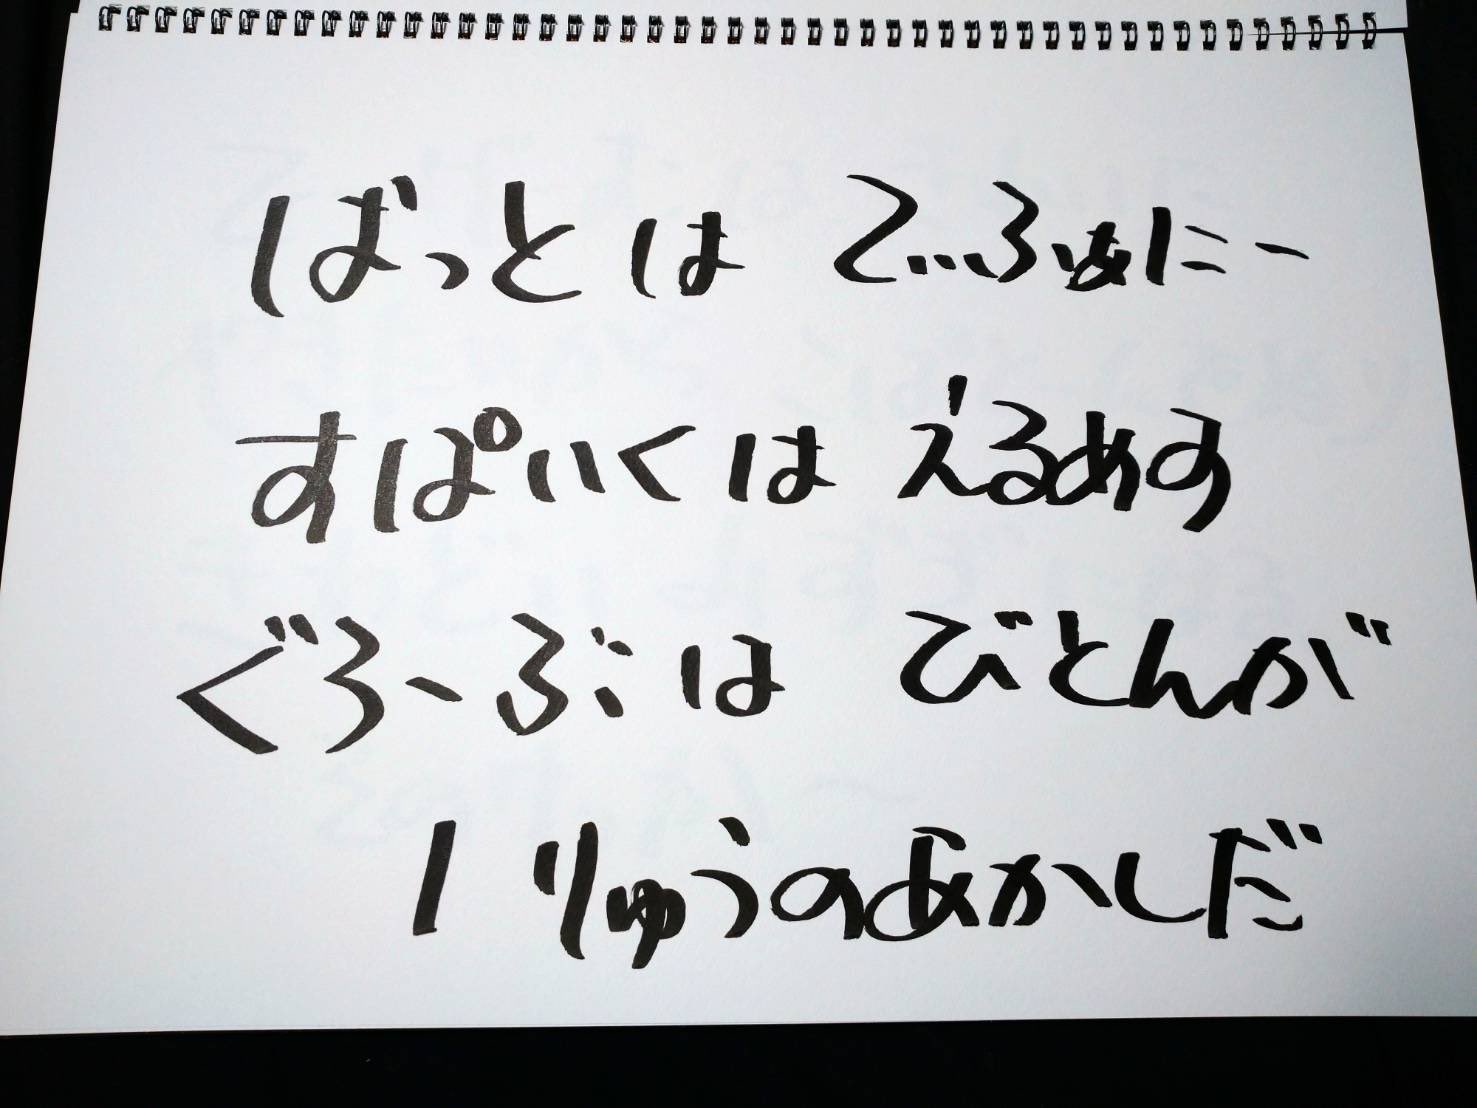 ばっとは てぃふぁにー
すぱいくは えるめす
ぐろーぶは びとんが
1りゅうのあかしだ